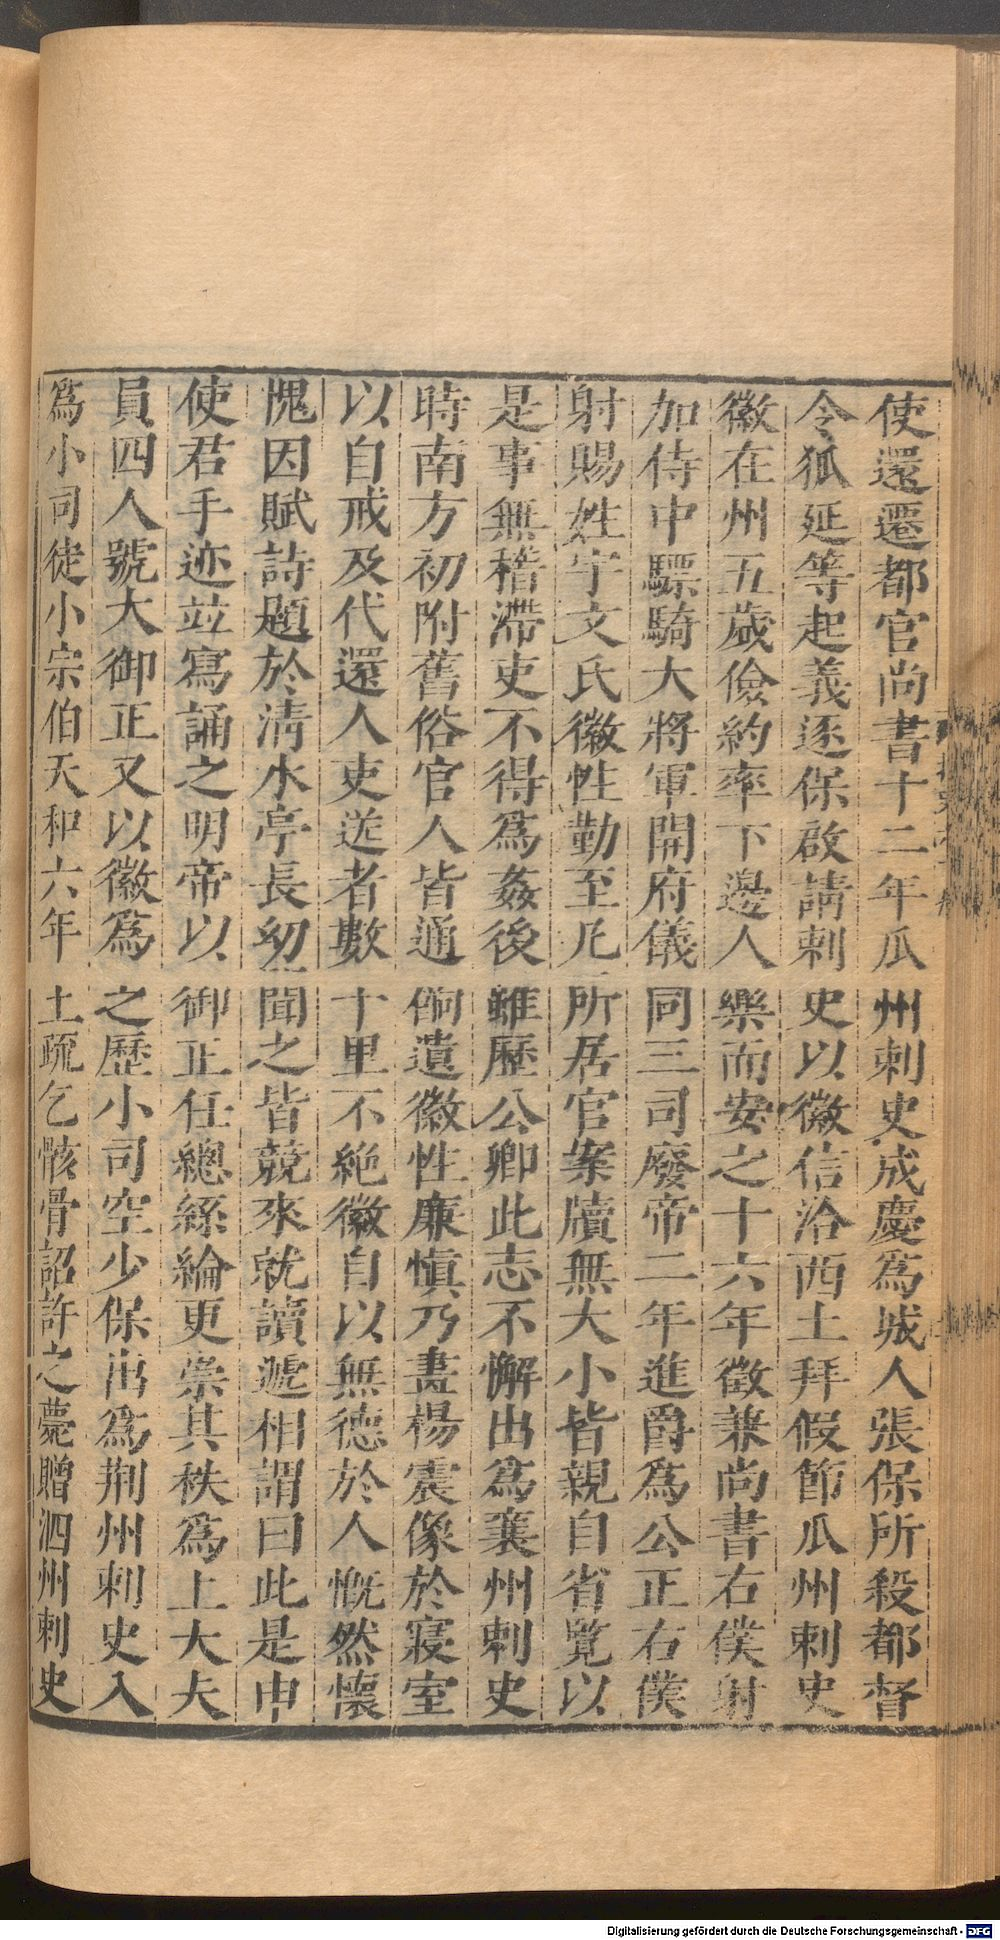 使還遷都官尚書十二年瓜州刺史成慶爲城人張保所殺都督
令狐延等起義逐保啟請刺史以徽信洽西土拜假節瓜州刺史
徽在州五歲儉約率下邊人樂而安之十六年徵兼尚書右僕射
加侍中驃騎大將軍開府儀同三司廢帝二年進爵爲公正右僕
射賜姓宇文氏徽性勤至凡所居官案牘無大小皆親自省覽以
是事無稽滯吏不得爲姦後雖歷公卿此志不懈出爲襄州刺史
時南方初附舊俗官人皆通餉遺徽性廉慎乃畫楊震像於寢室
以自戒及代還人吏送者數十里不絶徽自以無德於人慨然懷
愧因賦詩題於清水亭長幼聞之皆競來就讀遞相謂曰此是申
使君手迹竝寫誦之明帝以御正任總絲綸更崇其秩爲上大夫
員四人號大御正又以徽爲之歷小司空少保出爲荆州刺史入
爲小司徒小宗伯天和六年上疏乞骸骨詔許之薨贈泗州刺史
Digitalisierung gefördert durch die Deutsche Forschungsgemeinschaft - DFG